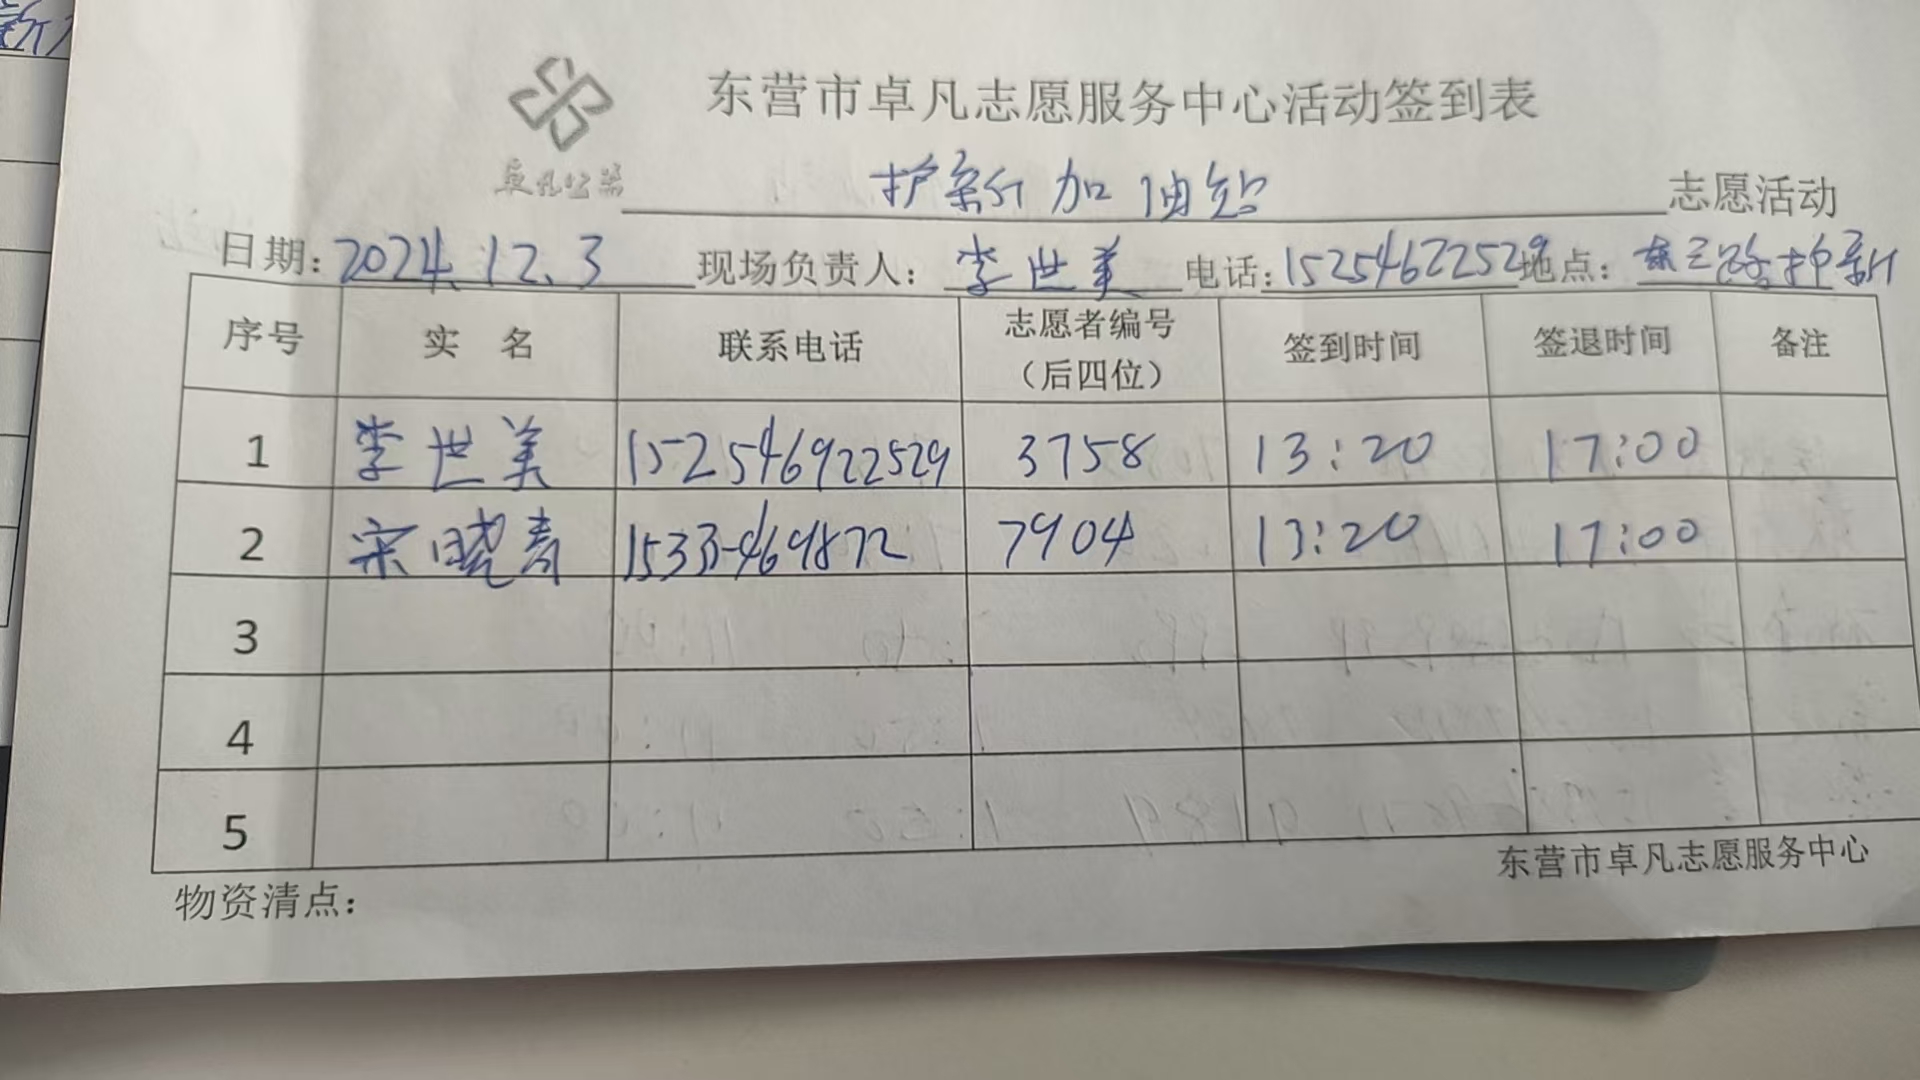 东营市卓凡志愿服务中心活动签到表
卓凡公益
护新加油站 志愿活动
日期: 2024.12.3 现场负责人: 李世美 电话: 15254622529 地点: 东三路护新
序号 实 名 联系电话 志愿者编号(后四位) 签到时间 签退时间 备注
1 李世美 152546922529 3758 13:20 17:00
2 宋晓青 1533469872 7904 13:20 17:00
3
4
5
东营市卓凡志愿服务中心
物资清点: